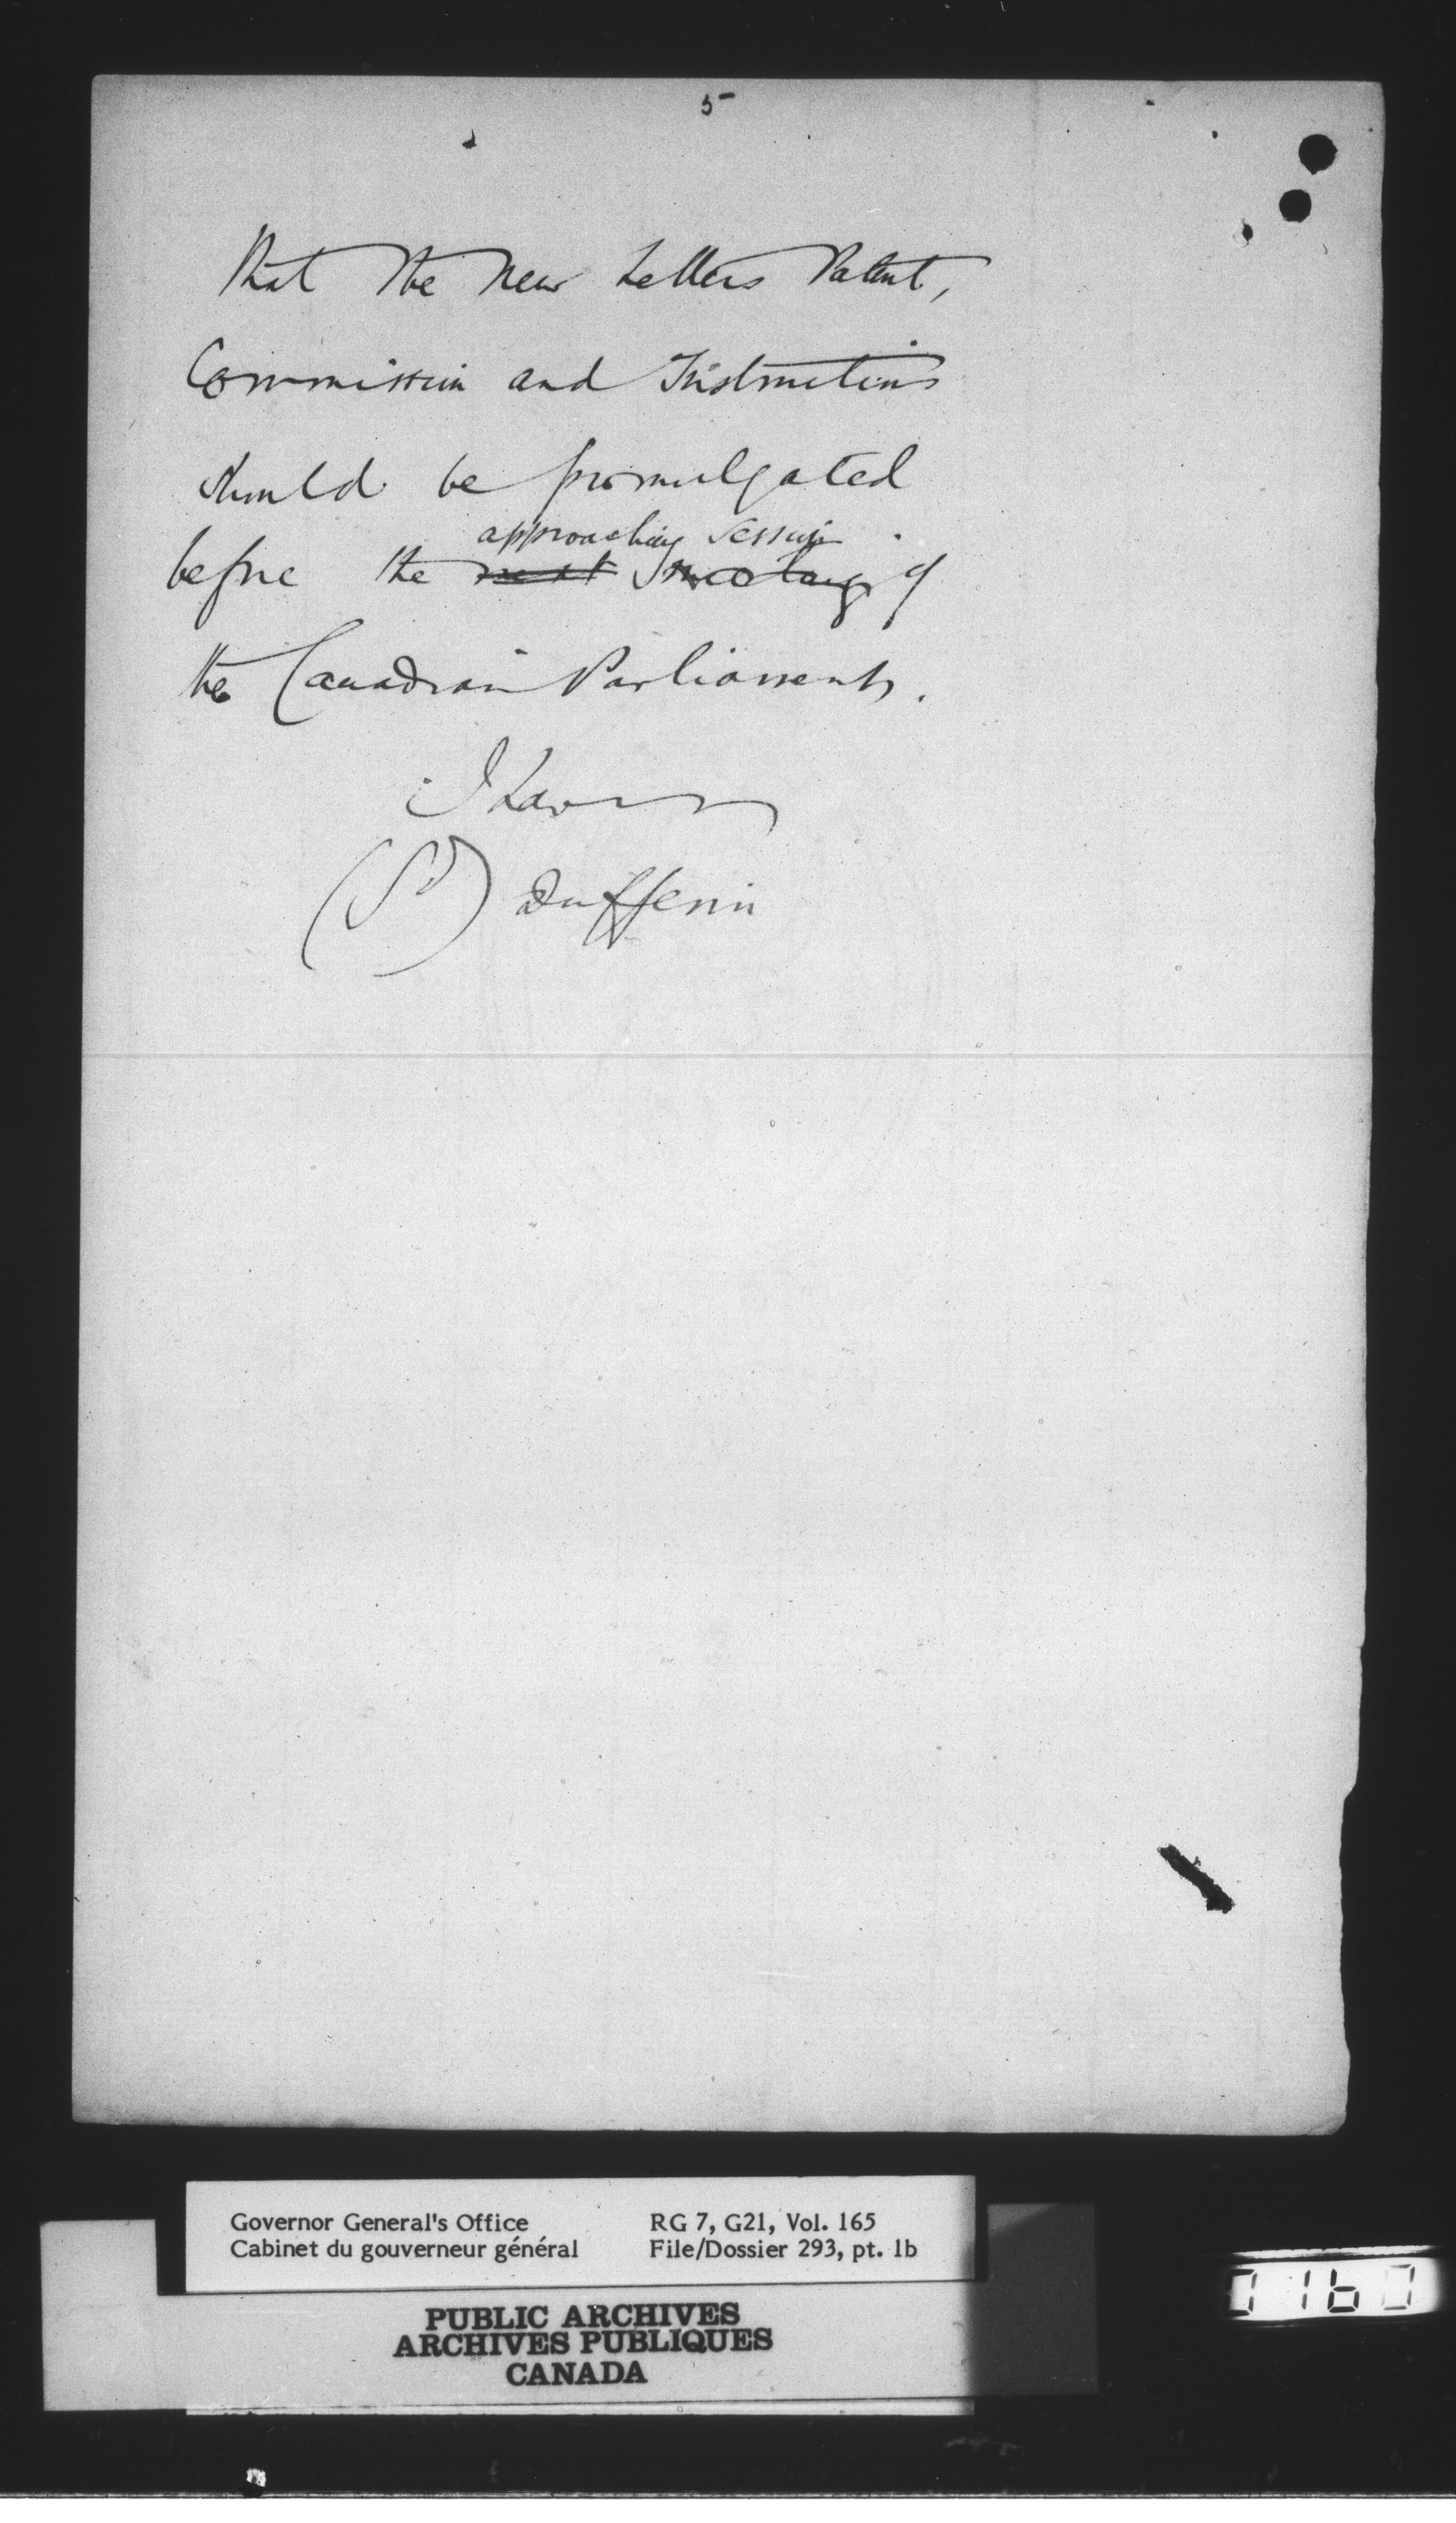 5
that the new Letters Patent,
Commission and Instructions
should be promulgated
approaching session
before the next meeting of
the Canadian Parliament.
I have
(Sd) Dufferin
Governor General's Office
Cabinet du gouverneur général
RG 7, G21, Vol. 165
File/Dossier 293, pt. 1b
PUBLIC ARCHIVES
ARCHIVES PUBLIQUES
CANADA
0160